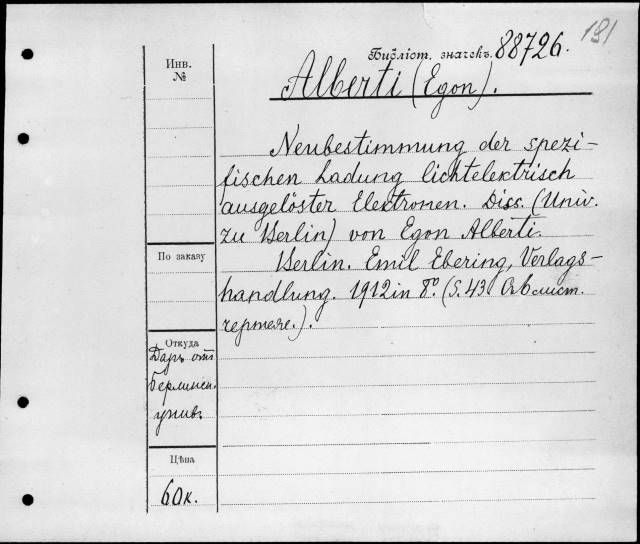 181
Библіот. значекъ. 88726.
Инв.
№
Alberti (Egon).
Neubestimmung der spezi-
fischen Ladung lichtelektrisch
ausgelöster Elektronen. Diss. (Univ.
zu Berlin) von Egon Alberti.
Berlin. Emil Ebering, Verlags-
handlung. 1912 in 8º. (S. 43 съ 6 лист.
чертеж.).
По заказу
Откуда
Даръ отъ
Берлинск.
унив.
Цѣна
60 к.